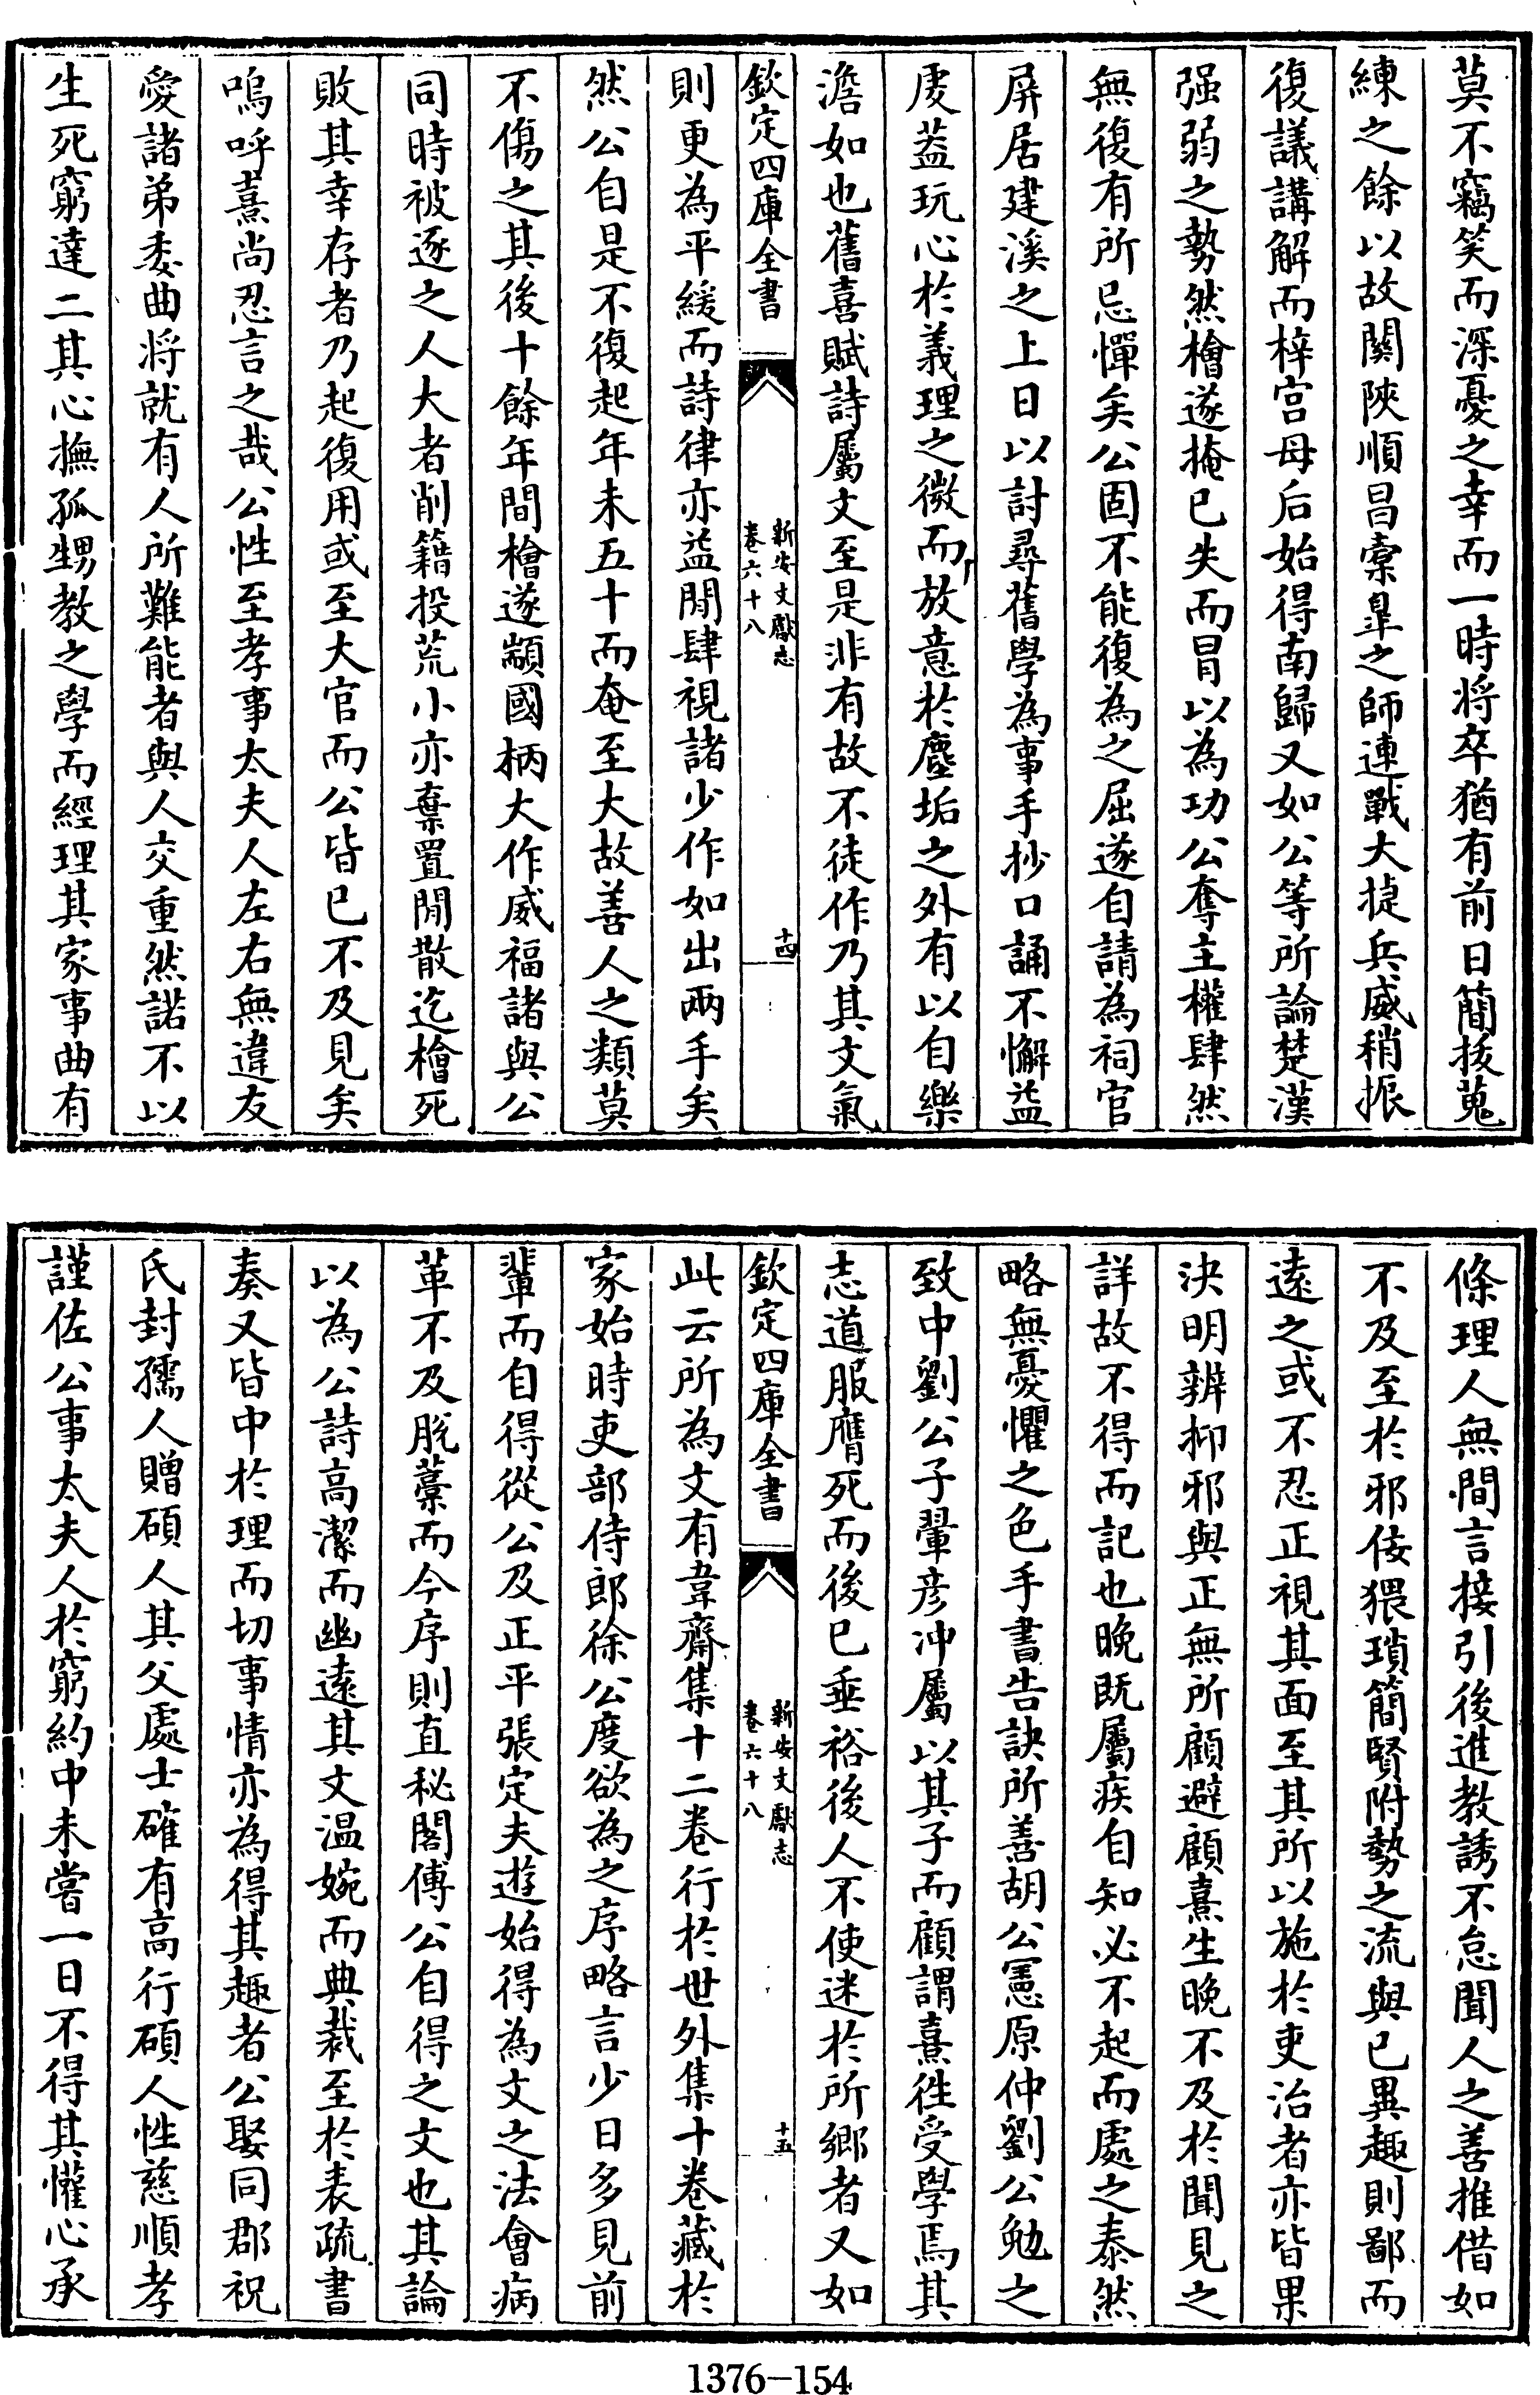 莫不竊笑而深憂之幸而一時将卒猶有前日簡拔蒐
練之餘以故關陜順昌橐臯之師連戰大捷兵威稍振
復議講解而梓宫母后始得南歸又如公等所論楚漢
强弱之勢然檜遂掩已失而冒以為功公奪主權肆然
無復有所忌憚矣公固不能復為之屈遂自請為祠官
屏居建溪之上日以討尋舊學為事手抄口誦不懈益
䖍葢玩心於義理之微而放意於塵垢之外有以自樂
澹如也舊喜賦詩屬文至是非有故不徒作乃其文氣
欽定四庫全書
新安文獻志
卷六十八
十四
則更為平緩而詩律亦益閒肆視諸少作如出兩手矣
然公自是不復起年未五十而奄至大故善人之類莫
不傷之其後十餘年間檜遂顓國柄大作威福諸與公
同時被逐之人大者削籍投荒小亦棄置閒散迄檜死
敗其幸存者乃起復用或至大官而公皆已不及見矣
嗚呼熹尚忍言之哉公性至孝事太夫人左右無違友
愛諸弟委曲将就有人所難能者與人交重然諾不以
生死窮達二其心撫孤甥教之學而經理其家事曲有
條理人無間言接引後進教誘不怠聞人之善推借如
不及至於邪佞猥瑣簡賢附勢之流與已異趣則鄙而
遠之或不忍正視其面至其所以施於吏治者亦皆果
決明辨抑邪與正無所顧避顧熹生晚不及於聞見之
詳故不得而記也晚既屬疾自知必不起而處之泰然
略無憂懼之色手書告訣所善胡公憲原仲劉公勉之
致中劉公子翬彦冲屬以其子而顧謂熹徃受學焉其
志道服膺死而後已垂裕後人不使迷於所鄉者又如
欽定四庫全書
新安文獻志
卷六十八
十五
此云所為文有韋齋集十二卷行於世外集十卷藏於
家始時吏部侍郎徐公度欲為之序略言少日多見前
輩而自得從公及正平張定夫遊始得為文之法會病
革不及脱藁而今序則直秘閣傅公自得之文也其論
以為公詩高潔而幽遠其文温婉而典裁至於表疏書
奏又皆中於理而切事情亦為得其趣者公娶同郡祝
氏封孺人贈碩人其父處士確有高行碩人性慈順孝
謹佐公事太夫人於窮約中未嘗一日不得其懽心承
1376-154